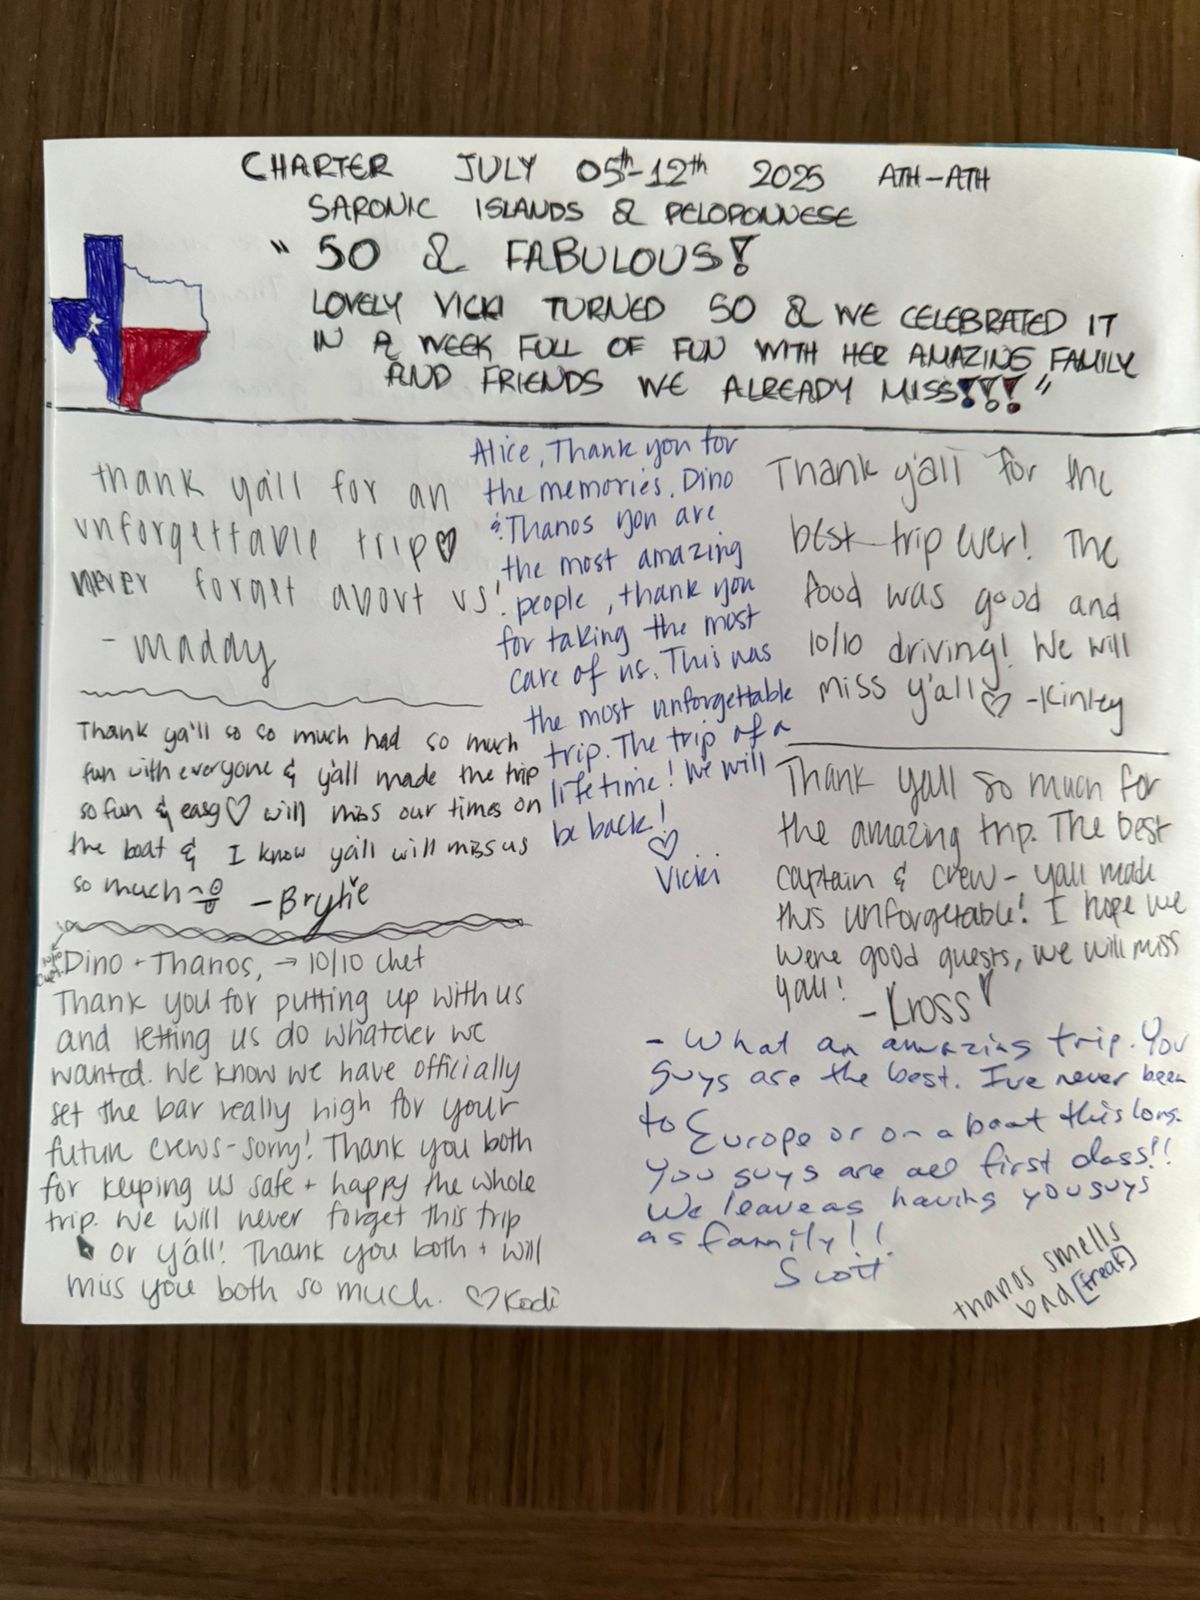 CHARTER JULY 05th-12th 2025 ATH-ATH
SARONIC ISLANDS & PELOPONNESE
" 50 & FABULOUS!
LOVELY VICKI TURNED 50 & WE CELEBRATED IT
IN A WEEK FULL OF FUN WITH HER AMAZING FAMILY
AND FRIENDS WE ALREADY MISS!!! "
thank ya'll for an
unforgettable trip♡
never forget about us!
- maddy
Thank ya'll so so much had so much
fun with everyone & y'all made the trip
so fun & easy♡ will miss our times on
the boat & I know ya'll will miss us
so much
- Brylie
Dino + Thanos, → 10/10 chef
Thank you for putting up with us
and letting us do whatever we
wanted. We know we have officially
set the bar really high for your
future crews - sorry! Thank you both
for keeping us safe + happy the whole
trip. We will never forget this trip
or y'all! Thank you both + will
miss you both so much. ♡ Kodi
Alice, Thank you for
the memories. Dino
& Thanos you are
the most amazing
people, thank you
for taking the most
care of us. This was
the most unforgettable
trip. The trip of a
lifetime! We will
be back!
♡
Vicki
Thank y'all for the
best trip ever! The
food was good and
10/10 driving! We will
miss y'all♡ -Kinley
Thank yall so much for
the amazing trip. The best
captain & crew - yall made
this unforgetable! I hope we
were good guests, we will miss
yall!
- Kross
- What an amazing trip. You
guys are the best. I've never been
to Europe or on a boat this long.
You guys are all first class!!
We leave as having you guys
as family!!
Scott
thanos smells
bad [freak]